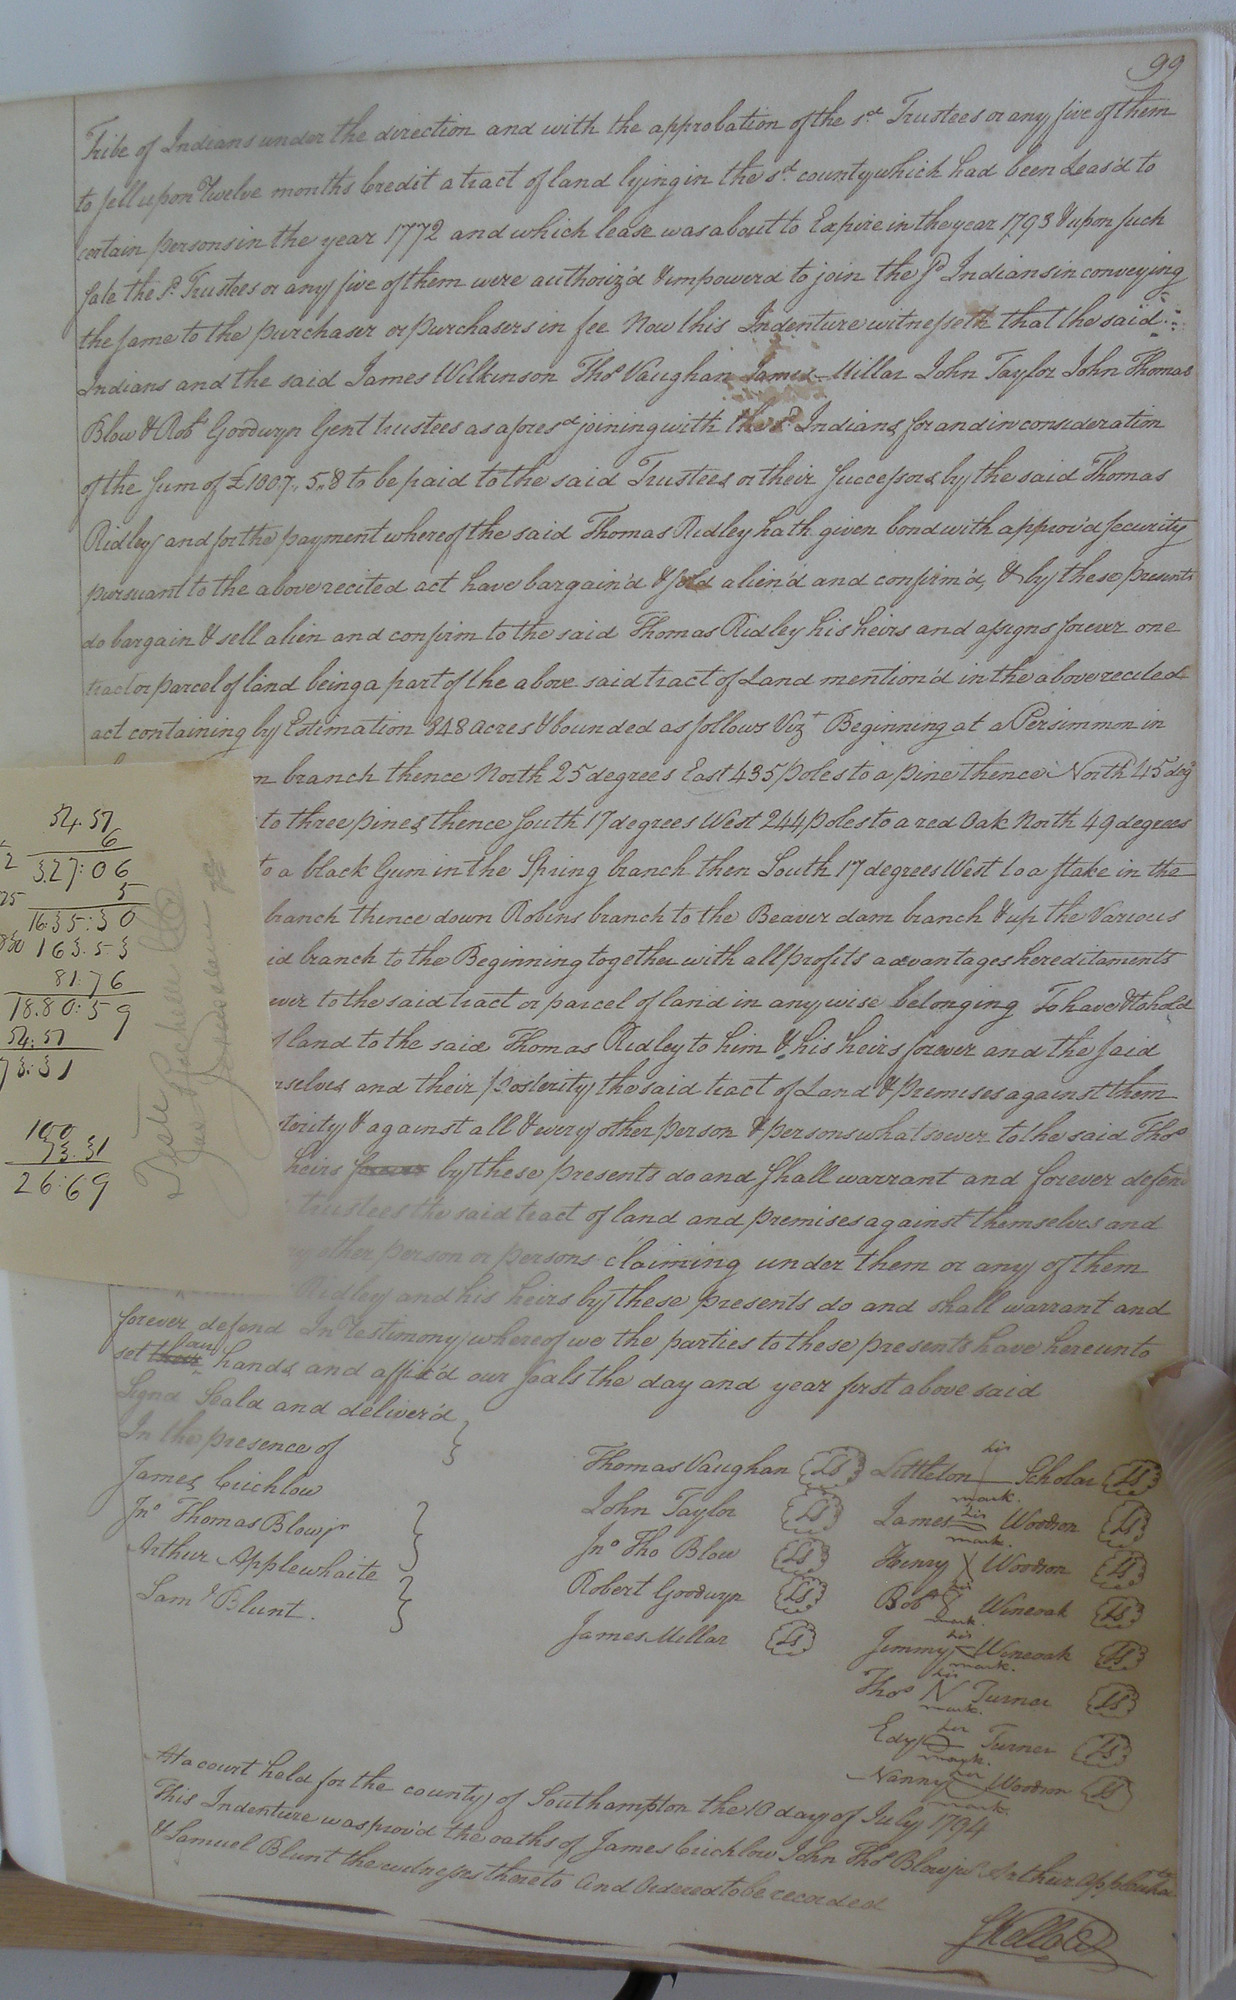 99
Tribe of Indians under the direction and with the approbation of the sd. Trustees or any five of them
to sell upon Twelve months Credit a tract of land lying in the sd. county which had been Leas'd to
certain persons in the year 1772 and which lease was about to Expire in the year 1793 & upon such
sale the sd. Trustees or any five of them were authoriz'd & empower'd to join the sd. Indians in conveying
the same to the purchaser or purchasers in fee Now this Indenture witnesseth that the said
Indians and the said James Wilkinson Thos Vaughan James Millar John Taylor John Thomas
Blow & Robt Goodwyn Gent trustees as afores'd joining with the sd. Indians for and in consideration
of the sum of £1007,, 5,,8 to be paid to the said Trustees or their Successors by the said Thomas
Ridley and for the payment whereof the said Thomas Ridley hath given bond with approv'd security
pursuant to the above recited act have bargain'd & sold alien'd and confirm'd, & by these presents
do bargain & sell alien and confirm to the said Thomas Ridley his heirs and assigns forever one
tract or parcel of land being a part of the above said tract of Land mention'd in the above recited
act containing by Estimation 848 acres & bounded as follows Vizt Beginning at a Persimmon in
branch thence North 25 degrees East 435 poles to a pine thence North 45 deg
to three pines thence South 17 degrees West 244 poles to a red Oak North 49 degrees
to a black Gum in the Spring branch then South 17 degrees West to a stake in the
branch thence down Robins branch to the Beaver dam branch & up the Various
branch to the Beginning together with all profits advantages hereditaments
to the said tract or parcel of land in any wise belonging To have & to hold
land to the said Thomas Ridley to him & his heirs forever and the said
and their posterity the said tract of Land & Premises against them
& against all & every other person & persons whatsoever to the said Thos
heirs forever by these presents do and shall warrant and forever defend
trustees the said tract of land and premises against themselves and
other person or persons claiming under them or any of them
Ridley and his heirs by these presents do and shall warrant and
forever defend In Testimony whereof we the parties to these presents have hereunto
set their our hands and affix'd our seals the day and year first above said
Signd Seald and deliver'd
In the presence of
James Crichlow
Jno Thomas Blow jr
Arthur Applewhaite
Saml Blunt.
Thomas Vaughan LS
John Taylor LS
Jno Tho Blow LS
Robert Goodwyn LS
James Millar LS
Littleton his mark. Scholar LS
James his mark. Woodson LS
Henry X Woodson LS
Bob his mark. Wineoak LS
Jimmy his mark. Wineoak LS
Thos his N mark. Turner LS
Edy her mark. Turner LS
Nanny her mark. Woodson LS
At a court held for the county of Southampton the 10 day of July 1794
This Indenture was prov'd the oaths of James Crichlow John Thos Blow jur. Arthur
& Samuel Blunt the witnesses thereto And Ordered to be recorded
54.57
6
327:06
5
1635:30
163.53
81.76
18.80:59
54:57
73:31
100
73.31
26:69
Teste